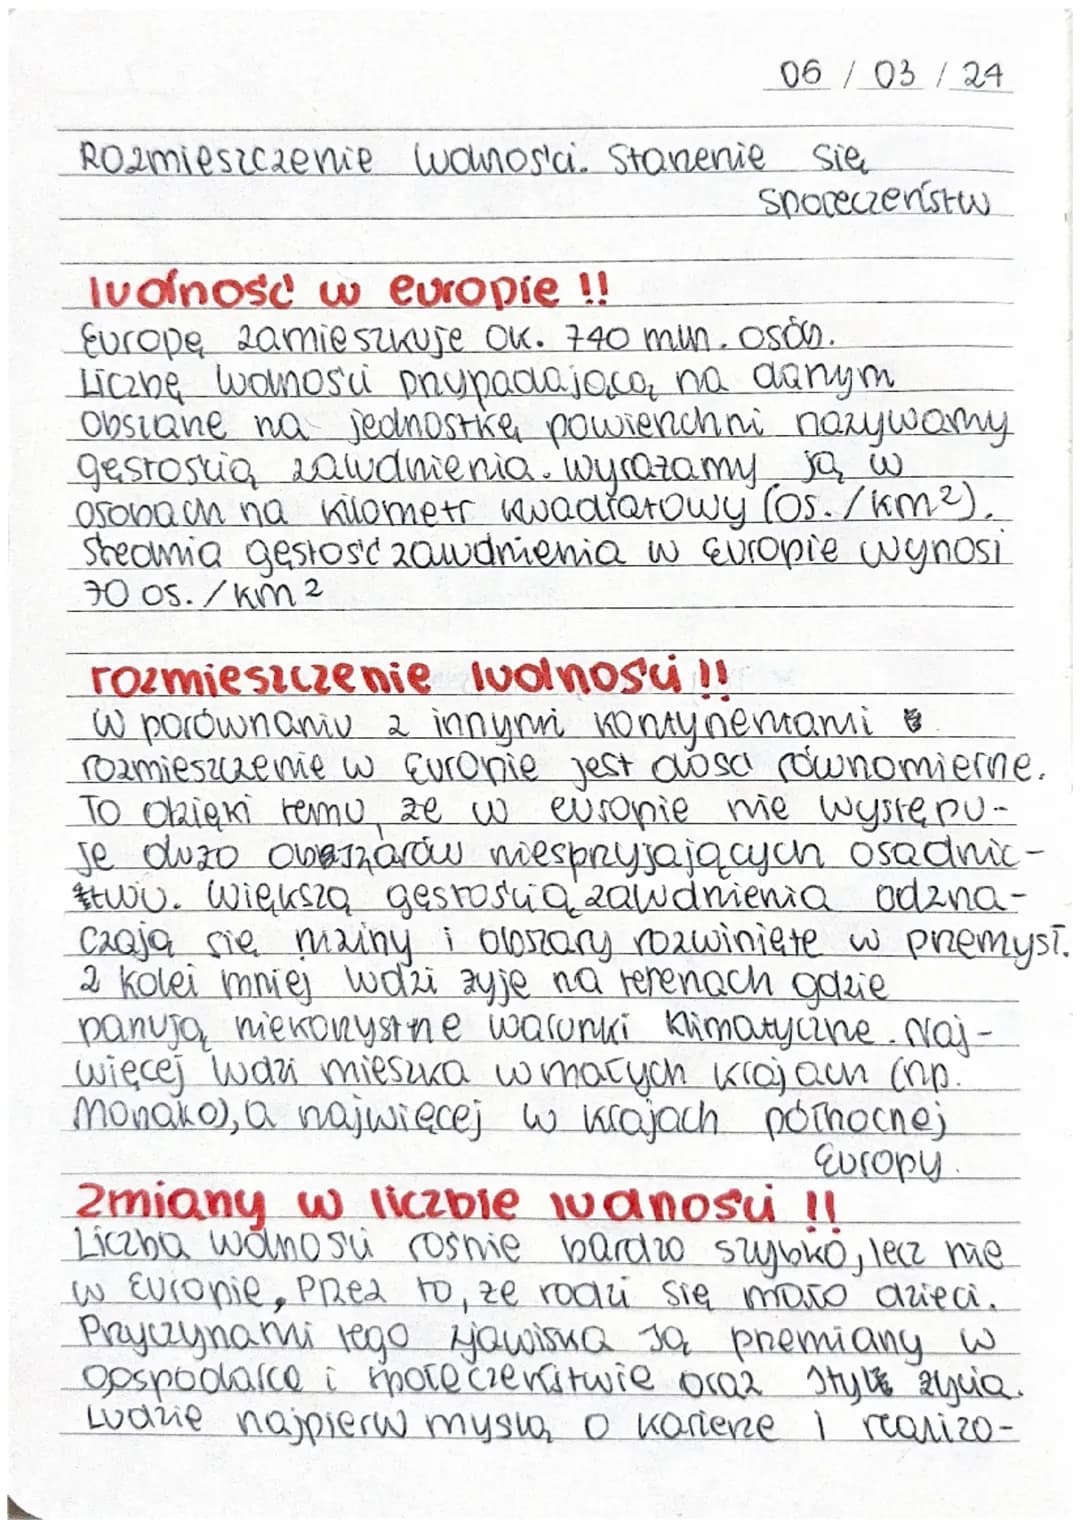 06 / 03 / 24
Rozmieszczenie ludności. Starzenie się
społeczeństw
ludność w europie !!
Europę zamieszkuje ok. 740 mln. osób.
Liczbę ludności przypadającą na danym
obszarze na jednostkę powierzchni nazywamy
gęstością zaludnienia. wyrażamy ją w
osobach na kilometr kwadratowy (os./km²).
Średnia gęstość zaludnienia w Europie wynosi
70 os./km²
rozmieszczenie ludności !!
W porównaniu z innymi kontynentami
rozmieszczenie w Europie jest dość równomierne.
To dzięki temu, że w europie nie występu-
je dużo obszarów niesprzyjających osadnic-
twu. Większą gęstością zaludnienia odzna-
czają się niziny i obszary rozwinięte w przemysł.
Z kolei mniej ludzi żyje na terenach gdzie
panują niekorzystne warunki klimatyczne. Naj-
więcej ludzi mieszka w małych krajach (np.
Monako), a najwięcej w krajach północnej
Europy.
Zmiany w liczbie ludności !!
Liczba ludności rośnie bardzo szybko, lecz nie
w Europie, Przez to, że rodzi się mało dzieci.
Przyczynami tego zjawiska są przemiany w
gospodarce i społeczeństwie oraz style życia.
Ludzie najpierw myślą o karierze i realizo-